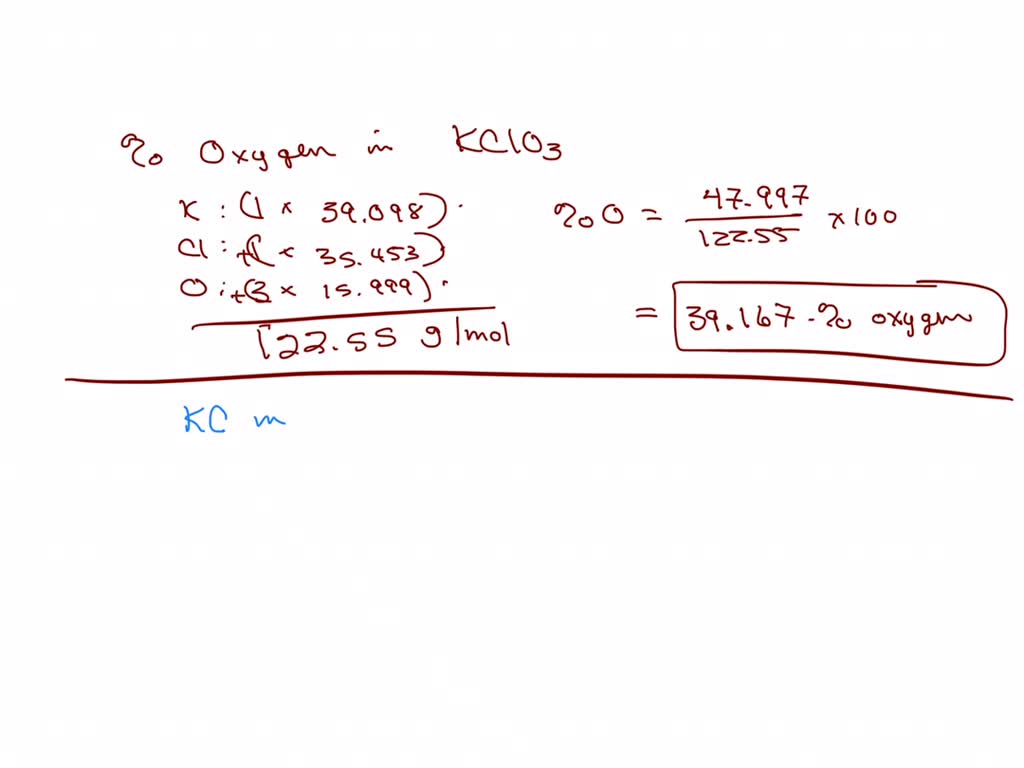 % Oxygen in KClO3
K : (1 × 39.098)
Cl : +(1 × 35.453)
O : +(3 × 15.999)
122.55 g/mol
%O = 47.997 / 122.55 × 100
= 39.167 % oxygen
KC m